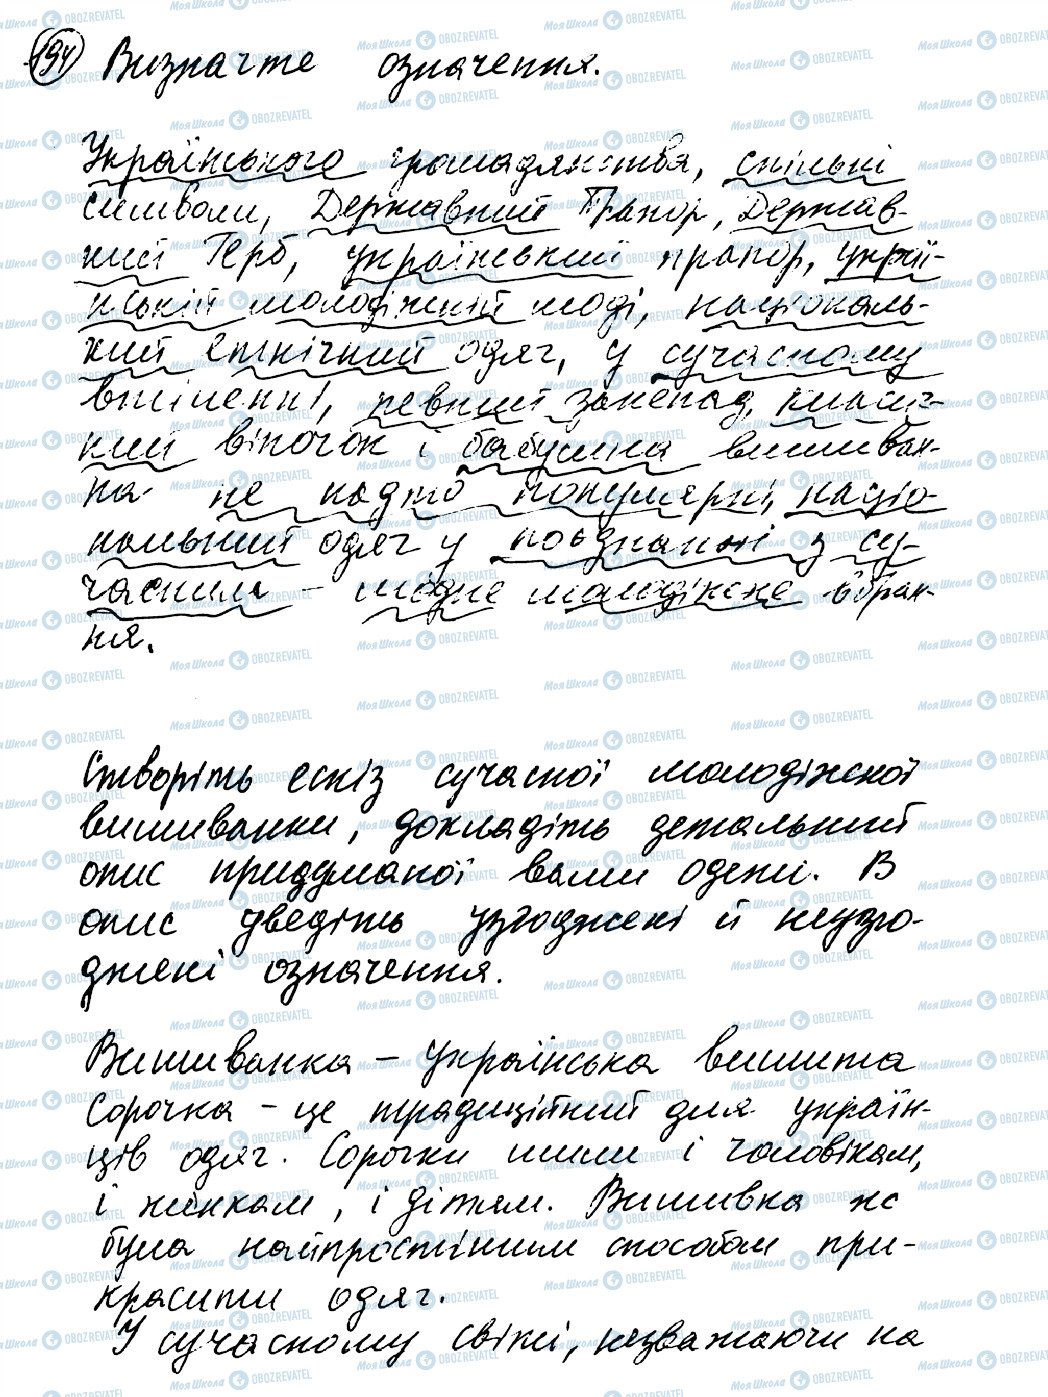 194 Визначте означення.
Українського громадянства, спільні
символи, Державний Прапор, Держав-
ний Герб, український прапор, украї-
нській молодіжній моді, національ-
ний етнічний одяг, у сучасному
втіленні, певний занепад, класич-
ний віночок і бабусина вишиван-
ка не надто популярні, націо-
нальний одяг у поєднанні з су-
часним - модне молодіжне вбран-
ня.
Створіть ескіз сучасної молодіжної
вишиванки, докладіть детальний
опис придуманої вами одежі. В
опис уведіть узгоджені й неузго-
джені означення.
Вишиванка - українська вишита
сорочка - це традиційний для україн-
ців одяг. Сорочки шили і чоловікам,
і жінкам, і дітям. Вишивка ж
була найпростішим способом при-
красити одяг.
У сучасному світі, незважаючи на